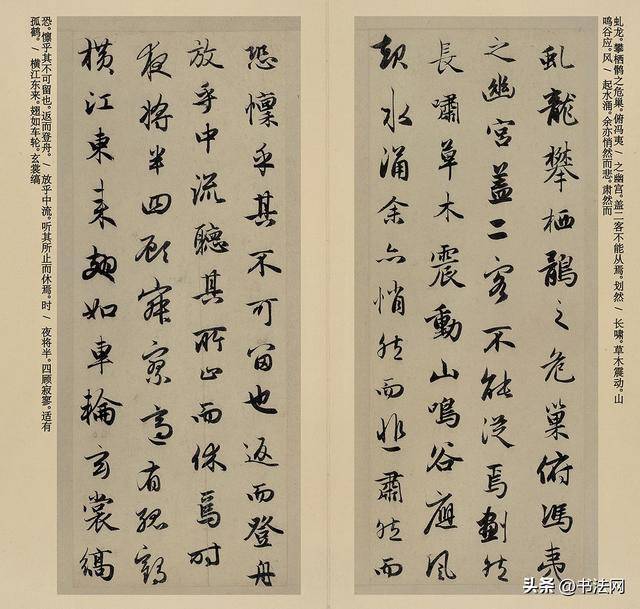 虬龙。攀栖鹘之危巢。俯冯夷╱之幽宫。盖二客不能从焉。划然╱长啸。草木震动。山
鸣谷应。风╱起水涌。余亦悄然而悲。肃然而
虬龍攀栖鶻之危巢俯馮夷
之幽宫盖二客不能從焉劃然
長嘯草木震動山鳴谷應風
起水涌余亦悄然而悲肅然而
恐懍乎其不可留也返而登舟
放乎中流聽其所止而休焉時
夜將半四顧寂寥適有孤鶴
横江東来翅如車輪玄裳縞
恐。懔乎其不可留也。返而登舟。╱放乎中流。听其所止而休焉。时╱夜将半。四顾寂寥。适有
孤鹤。╱横江东来。翅如车轮。玄裳缟
头条 @书法网